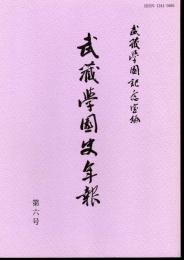 ISSN 1341-0660
武蔵學園記念室編
武蔵學園史年報
第六号